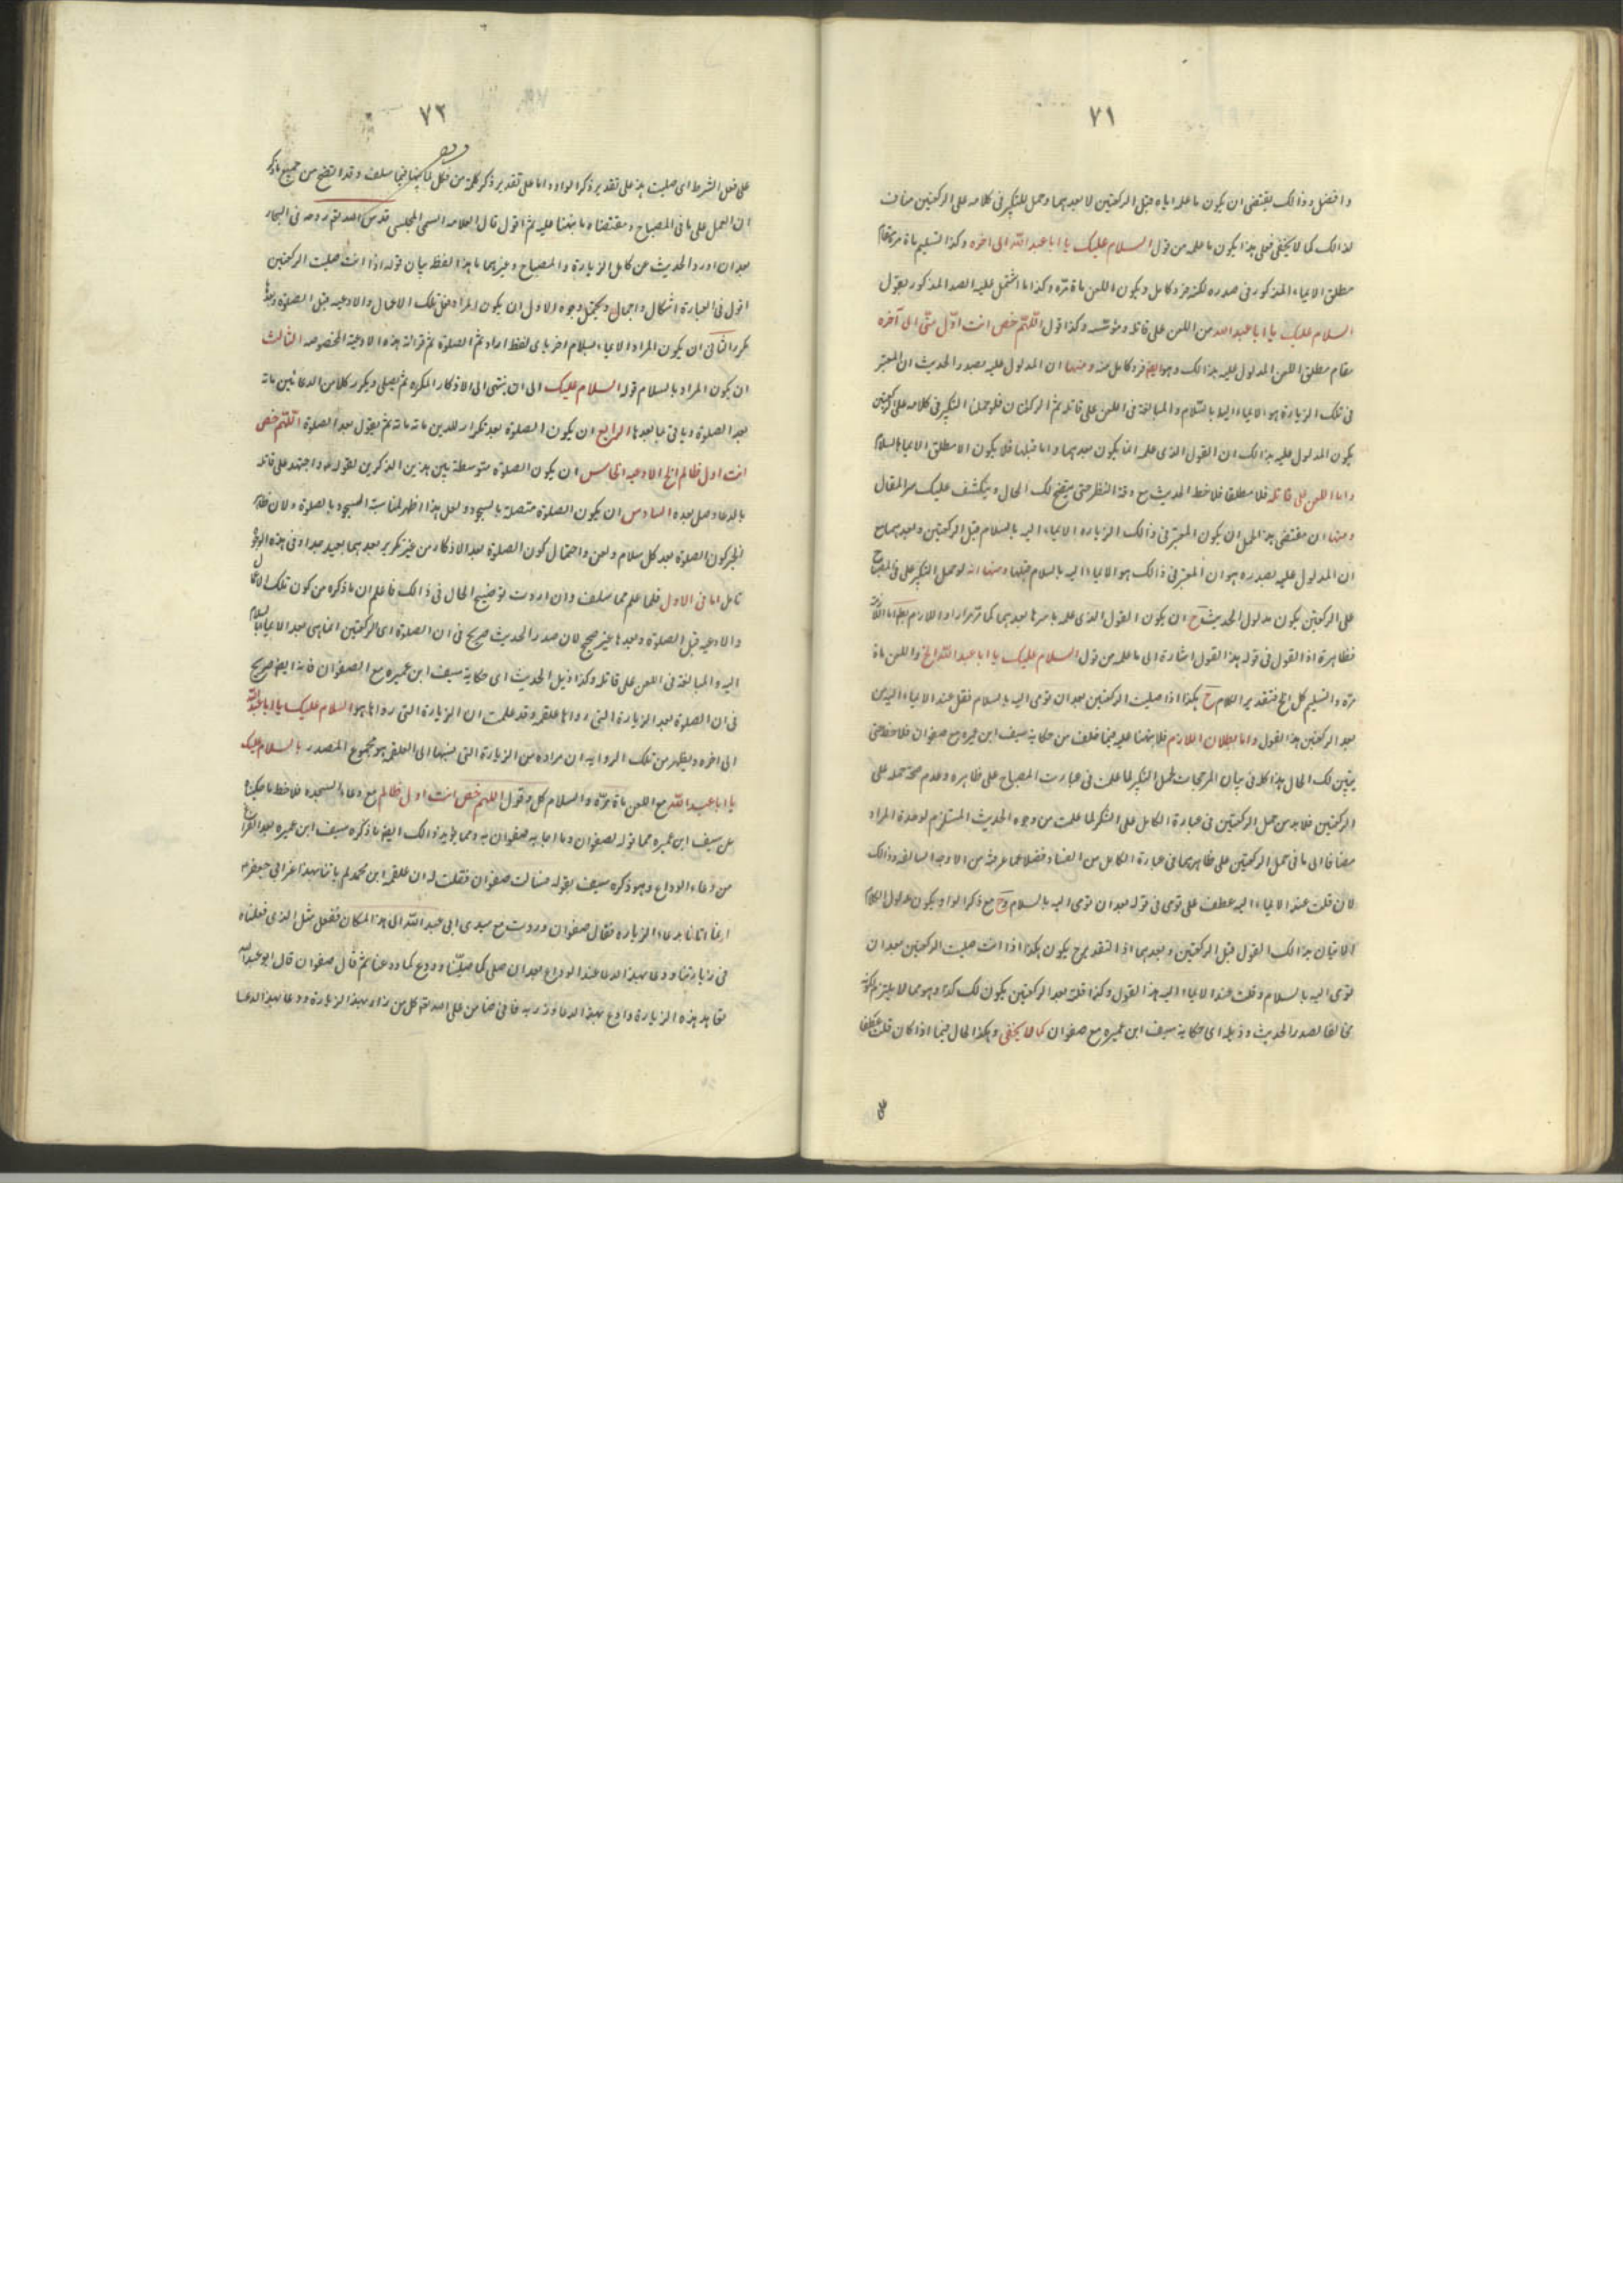 ٧١
وافضل وذالك يقتضى ان يكون ما علمه اياه قبل الركعتين لا بعدهما وحمل التكبير فى كلامه على الركعتين مناف
لذالك كما لا يخفى فعلى هذا يكون ما علمه من قول السلام عليك يا ابا عبد الله الى اخره وكذا التسليم مأة مرة مقام
مطلق الايماء المذكور فى صدره لكنه فرد كامل ويكون اللعن مأة مرة وكذا ما اشتمل عليه الصدر المذكور بقول
السلام عليك يا ابا عبد الله من اللعن على قاتله ومؤسسه وكذا قول اللّهم خص انت اوّل منّى الى آخره
مقام مطلق اللعن المدلول عليه بذالك وهو ايضا فرد كامل منه ومنها ان المدلول عليه بصدر الحديث ان المعتبر
فى تلك الزيارة هو الايماء اليه بالسّلام والمبالغة فى اللعن على قاتله ثم الركعتان فلو حملنا التكبير فى كلامه على الركعتين
يكون المدلول عليه بذالك ان القول الذى علمه انما يكون بعدهما واما قبلهما فلا يكون الا مطلق الايماء بالسلام
واما اللعن على قاتله فلا مطلقا فلاحظ الحديث مع دقة النظر حتى يتضح لك الحال وينكشف عليك سر المقال
ومنها ان مقتضى هذا الحمل ان يكون المعتبر فى ذالك الزيارة الايماء اليه بالسلام قبل الركعتين وبعدهما مع
ان المدلول عليه بصدره هو ان المعتبر فى ذالك هو الايماء اليه بالسلام قبلهما ومنها انه لو حمل التكبير على فى المصباح
على الركعتين يكون مدلول الحديث ح ان يكون القول الذى علمه باسرها بعدهما كما مر مرارا واللازم بط اما الملازمة
فظاهرة اذ القول فى قوله هذا القول اشارة الى ما علمه من قول السلام عليك يا ابا عبد اللّه الخ واللعن مأة
مرة والتسليم كل الخ فتقدير الكلام ح هكذا اذا صليت الركعتين بعد ان تومى اليه بالسلام فقل عند الايماء اليه من
بعد الركعتين هذا القول واما بطلان اللازم فلما نبهنا عليه فيما سلف من حكاية سيف ابن عميره مع صفوان فلاحظ حتى
يتبين لك الحال هذا كله فى بيان المرجحات لحمل التكبير لما علمت فى عبارت المصباح على ظاهره وعدم صحة حمله على
الركعتين فلابد من حمل الركعتين فى عبارة الكامل على التكبير لما علمت من وجوه الحديث المستلزم لوحدة المراد
مضافا الى ما فى حمل الركعتين على ظاهرهما فى عبارة الكامل من الفساد فضلا عما عرفته من الاوجه السالفه وذالك
لان قلت عند الايماء اليه عطف على تومى فى قوله بعد ان تومى اليه بالسلام وح مع ذكر الواو يكون مدلول الكلام
الاتيان بذالك القول قبل الركعتين وبعدهما اذ التقدير ح يكون هكذا اذا انت صليت الركعتين بعد ان
تومى اليه بالسلام وقلت عند الايماء اليه هذا القول وكذا قلته بعد الركعتين يكون لك كذا وهو مما لا يلتزم لكونه
مخالفا لصدر الحديث وذيله اى حكاية سيف ابن عميره مع صفوان كما لا يخفى وهكذا الحال فيما اذا كان قلت عطفا
على
٧٢
على فعل الشرط اى صليت هذا على تقدير ذكر الواو واما على تقدير ذكر كلمة من فكل ما نبهنا فيما سلف وقد اتضح من جميع ما ذكر
ان العمل على ما فى المصباح ومقتضاه ما نبهنا عليه ثم اقول قال العلامه السمى المجلسى قدس الله تعم روحه فى البحار
بعد ان اورد الحديث عن كامل الزيارة والمصباح وغيرهما ما هذا لفظه بيان قوله اذا انت صليت الركعتين
اقول فى العبارة اشكال واجمال ويحتمل وجوه الاول ان يكون المراد فعل تلك الاعمال والادعيه قبل الصلوة وبعدها
مكررا الثانى ان يكون المراد الايماء بسلام اخر باى لفظ اراد ثم الصلوة ثم قرائة هذه الادعية المخصوصه الثالث
ان يكون المراد بالسلام قوله السلام عليك الى ان ينتهى الى الاذكار المكرره ثم يصلى ويكرر كلا من الدعائين مائه
بعد الصلوة وياتى بما بعدها الرابع ان يكون الصلوة بعد تكرار الذكرين مائه مائه ثم يقول بعد الصلوة اللّهم خص
انت اول ظالم الخ الادعيه الخامس ان يكون الصلوة متوسطة بين هذين الذكرين لقوله واجتهد على قاتله
بالدعاء وصل بعده السادس ان يكون الصلوة متصلة بالسجود ولعل هذا اظهر لمناسبة السجود بالصلوة ولان ظاهر
الخبر كون الصلوة بعد كل سلام ولعن واحتمال كون الصلوة بعد الاذكار من غير تكرير بعدهما بعيد جدا وفى هذه الوجوه
تامل اما فى الاول فلما علم مما سلف وان اردت توضيح الحال فى ذالك فاعلم ان ما ذكره من كون تلك الاعمال
والادعيه قبل الصلوة وبعدها غير صحيح لان صدر الحديث صريح فى ان الصلوة اى الركعتين انما هى بعد الايماء بالسلام
اليه والمبالغة فى اللعن على قاتله وكذا ذيل الحديث اى حكاية سيف ابن عميره مع الصفوان فانه ايضا صريح
فى ان الصلوة بعد الزيارة التى رواها علقمه وقد علمت ان الزيارة التى رواها هو السلام عليك يا ابا عبد الله
الى اخره ويظهر من تلك الروايه ان مراده من الزيارة التى نسبها الى العلقمه هو مجموع المصدر بالسلام عليك
يا ابا عبد اللّه مع اللعن مأة مرّة والسلام كل وقول اللهم خص انت اول ظالم مع دعاء السجده فلاحظ ما حكيناه
عن سيف ابن عميره مما قوله لصفوان وما اجابه صفوان به ومما يؤيد ذالك ايضا ما ذكره سيف ابن عميره بعد الفراغ
من دعاء الوداع وهو ذكره سيف بقوله فسالت صفوان فقلت له ان علقمه ابن محمد لم ياتنا بهذا عن ابى جعفر ع
انما اتانا بدعاء الزياره فقال صفوان وردت مع سيدى ابى عبد اللّه الى هذا المكان ففعل مثل الذى فعلناه
فى زيارتنا ودعا بهذا الدعا عند الوداع بعد ان صلى كما صلّينا وودع كما ودعنا ثم قال صفوان قال ابو عبد الله
تعاهد هذه الزيارة وادع بهذا الدعاء وزر به فانى ضامن على الله تعم كل من زار بهذا الزيارة ودعا بهذا الدعا